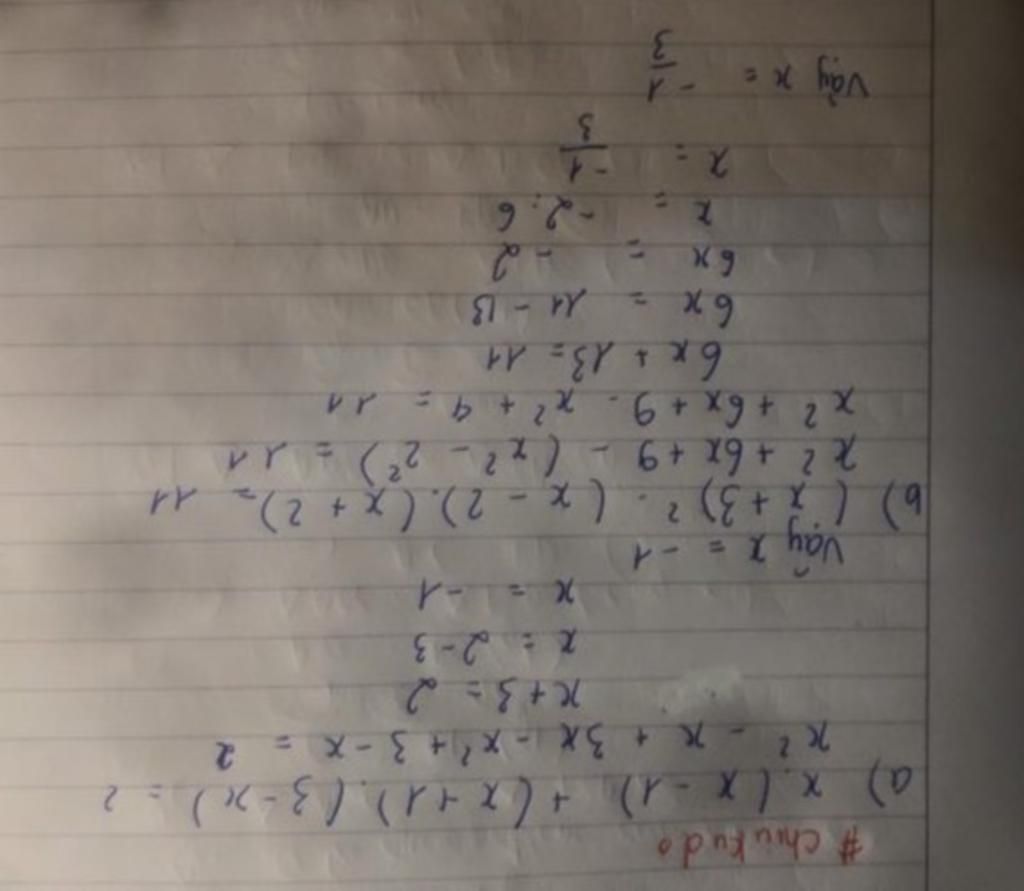 #chiukudo
a) x.(x - 1) + (x + 1).(3 - x) = 2
x² - x + 3x - x² + 3 - x = 2
x + 3 = 2
x = 2 - 3
x = -1
Vậy x = -1
b) (x + 3)² - (x - 2).(x + 2) = 11
x² + 6x + 9 - (x² - 2²) = 11
x² + 6x + 9 - x² + 4 = 11
6x + 13 = 11
6x = 11 - 13
6x = -2
x = -2 : 6
x = -1/3
Vậy x = -1/3